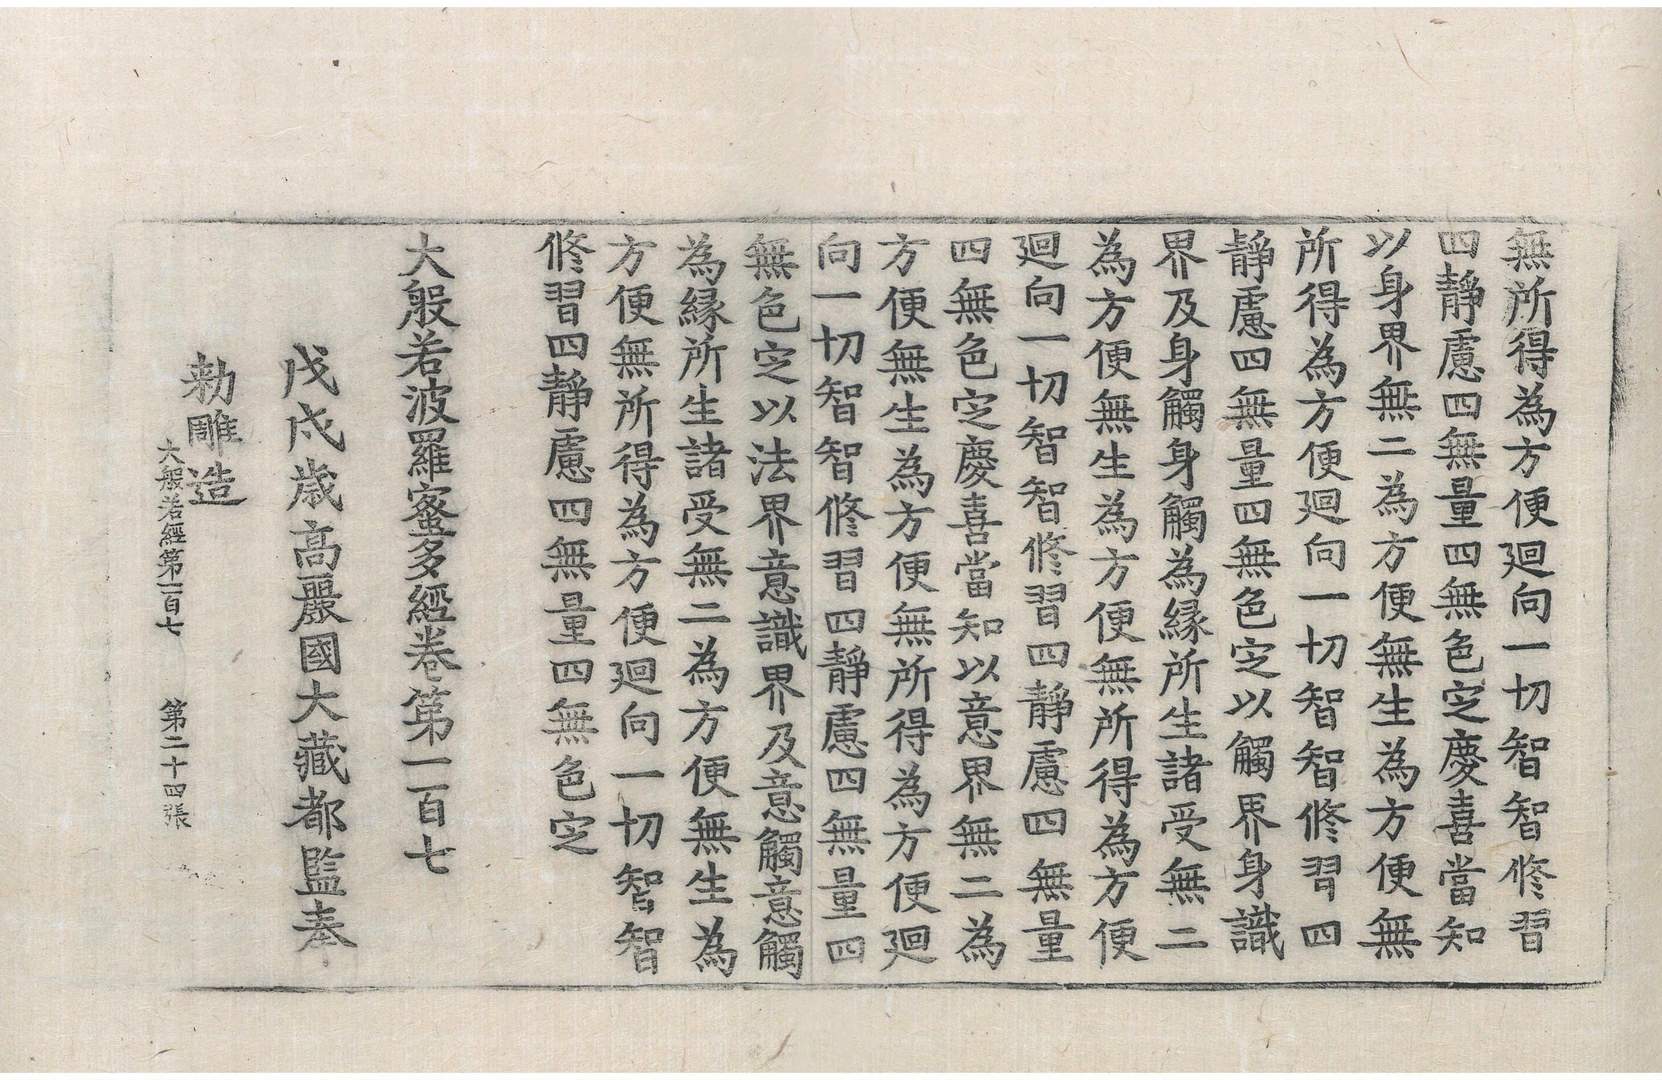 無所得為方便迴向一切智智修習
四靜慮四無量四無色定慶喜當知
以身界無二為方便無生為方便無
所得為方便迴向一切智智修習四
靜慮四無量四無色定以觸界身識
界及身觸身觸為緣所生諸受無二
為方便無生為方便無所得為方便
迴向一切智智修習四靜慮四無量
四無色定慶喜當知以意界無二為
方便無生為方便無所得為方便迴
向一切智智修習四靜慮四無量四
無色定以法界意識界及意觸意觸
為緣所生諸受無二為方便無生為
方便無所得為方便迴向一切智智
修習四靜慮四無量四無色定
大般若波羅蜜多經卷第一百七
戊戌歲高麗國大藏都監奉
勅雕造
大般若經第一百七 第二十四張